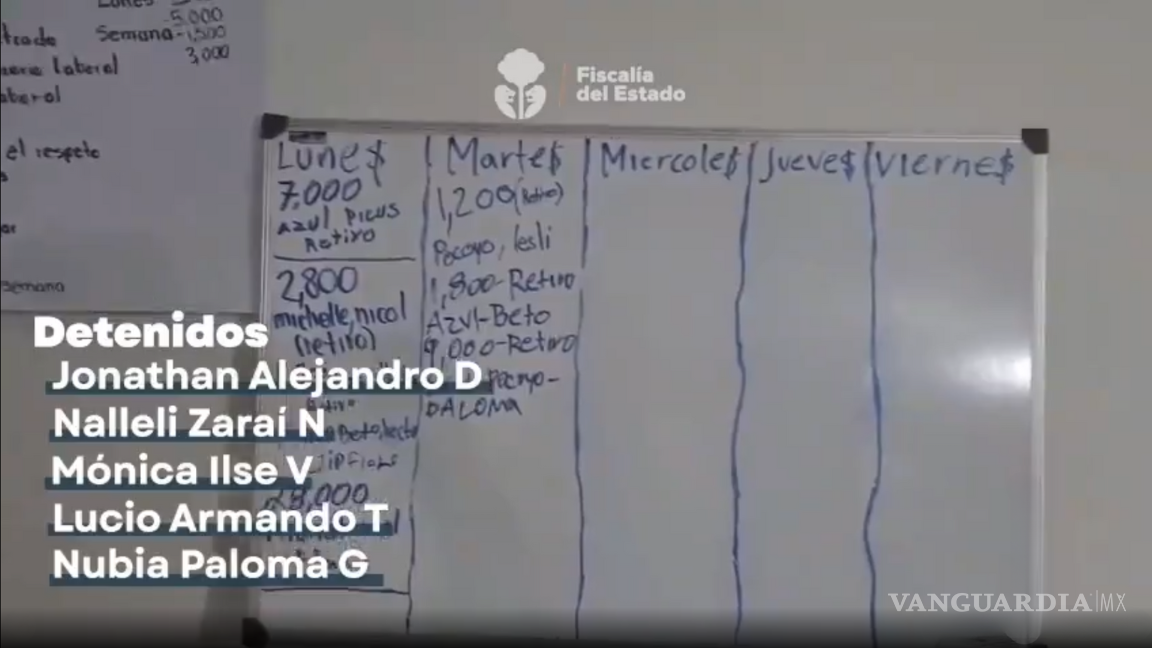 5,000
Semana-1,500
3,000
lateral
el respeto
semana
Fiscalía
del Estado
Lune$
7,000
Azul Picus
Retiro
2,800
michelle, nicol
(retiro)
Marte$
1,200(Retiro)
Pocoyo, lesli
1,800-Retiro
Azul-Beto
9,000-Retiro
Pocoyo-
PALOMA
Miercole$
Jueve$
Vierne$
Detenidos
Jonathan Alejandro D
Nalleli Zaraí N
Mónica Ilse V
Lucio Armando T
Nubia Paloma G
VANGUARDIA|MX